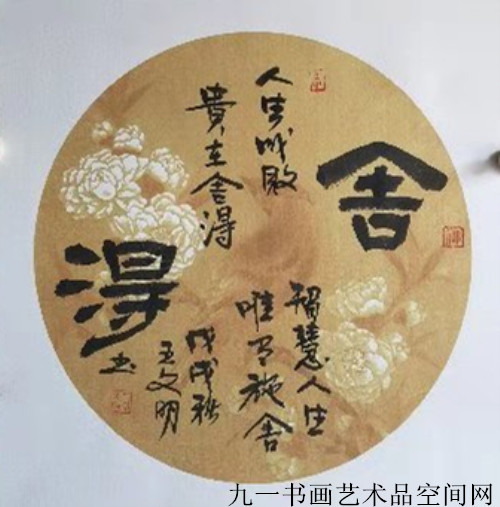 舍
得
人生成败
貴在舍得
智慧人生
唯有施舍
戊戌秋
王文明
书
九一书画艺术品空间网